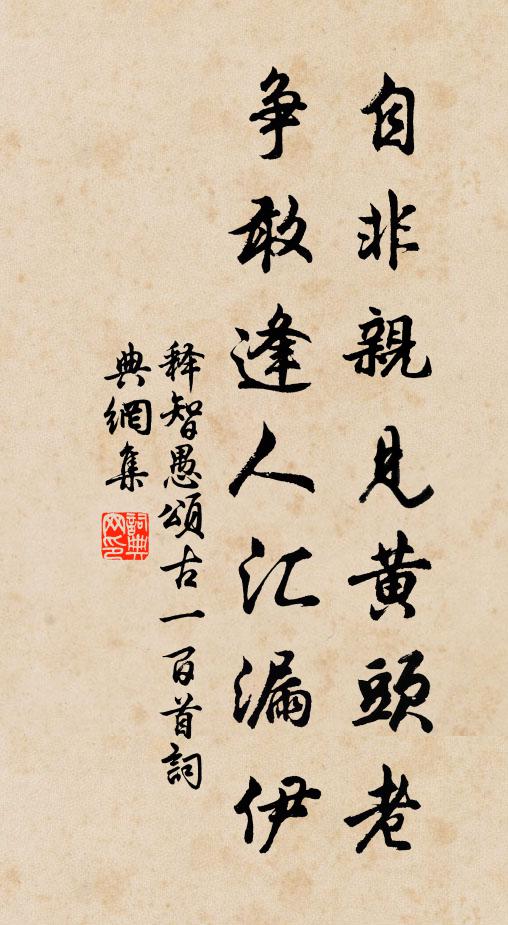 自非親見黃頭老
争敢逢人汇漏伊
释智愚頌古一百首詞
典網集
詞典網印